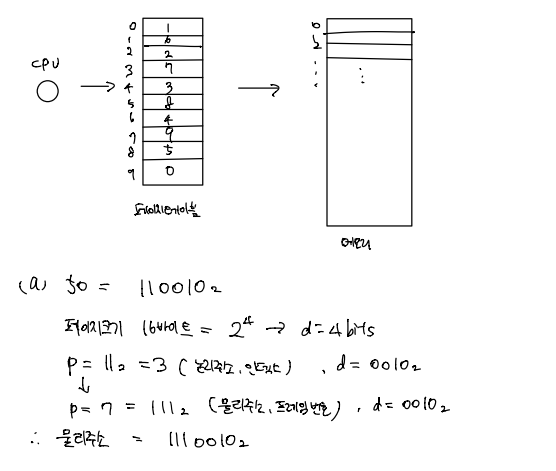 CPU
0 1
1 6
2 2
3 7
4 3
5 8
6 4
7 9
8 5
9 0
페이지테이블
0
2
메모리
(a) 50 = 110010₂
페이지크기 16바이트 = 2⁴ → d=4bits
P = 11₂ = 3 (논리주소, 인덱스), d = 0010₂
↓
P = 7 = 111₂ (물리주소, 프레임번호), d = 0010₂
∴ 물리주소 = 1110010₂